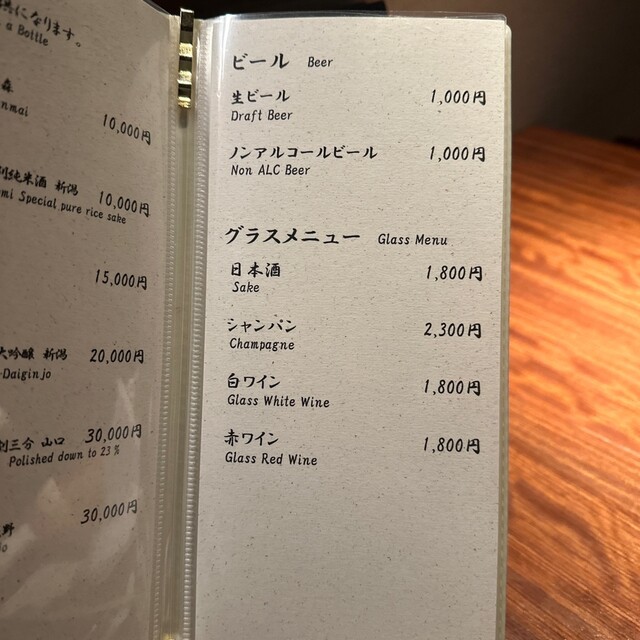 になります。
a Bottle
森
10,000円
純米酒 新潟
10,000円
Special pure rice sake
15,000円
大吟醸 新潟
20,000円
Daiginjo
割三分 山口
30,000円
Polished down to 23%
野
30,000円
ビール Beer
生ビール 1,000円
Draft Beer
ノンアルコールビール 1,000円
Non ALC Beer
グラスメニュー Glass Menu
日本酒 1,800円
Sake
シャンパン 2,300円
Champagne
白ワイン 1,800円
Glass White Wine
赤ワイン 1,800円
Glass Red Wine